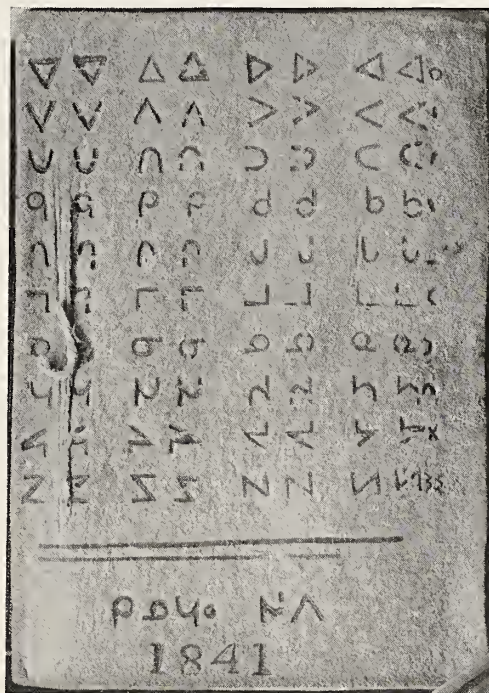 ᐁ ᐁ ᐃ ᐃ ᐅ ᐅ ᐊ ᐊᐤ
ᐯ ᐯ ᐱ ᐱ ᐳ ᐳ ᐸ ᐸ
ᑌ ᑌ ᑎ ᑎ ᑐ ᑐ ᑕ ᑕ
ᑫ ᑫ ᑭ ᑭ ᑯ ᑯ ᑲ ᑲ
ᒉ ᒉ ᒋ ᒋ ᒍ ᒍ ᒐ ᒐ
ᒣ ᒣ ᒥ ᒥ ᒧ ᒧ ᒪ ᒪ
ᓀ ᓀ ᓂ ᓂ ᓄ ᓄ ᓇ ᓇᐣ
ᓭ ᓭ ᓯ ᓯ ᓱ ᓱ ᓴ ᓴ
ᔦ ᔦ ᔨ ᔨ ᔪ ᔪ ᔭ ᔭx
ᔐ ᔐ ᔑ ᔑ ᔓ ᔓ ᔕ
ᑭᓄᓭᐤ ᓰᐱ
1841